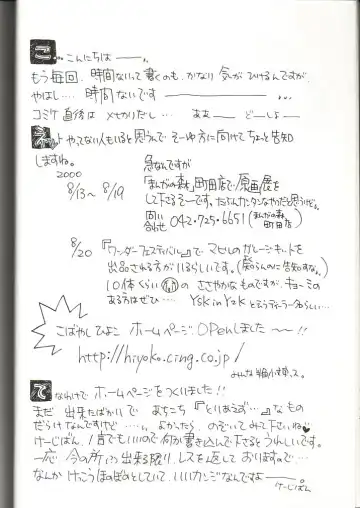 こ…こんにちは――。
もう毎回、時間ないって書くのも、かなり気がひけるんですが、
やはし…時間ないです――――…。
コミケ直後は〆せかりだし…ああ―どーしよ―
ネットやってない人もいると思うんでそーゆ方に向けてちょっと告知
しますね。
2000
8/13～8/19
急なんですが
「まんがの森」町田店で原画展を
して下さるそーです。たぶんカンタンなやだと思うけど。
問い合せ 042・725・6651(まんがの森町田店)
8/20 『ワンダーフェスティバル』でマヒルのガレージキットを
出品される方がいらしいです。(知らんのに告知するな。)
10体くらいの ささやかなものですが、キョーミの
ある方はぜひ… YSK in YZK とゆうディーラーらしい…
こばやしひよこ ホームページ OPenしました――!!
http://hiyoko.cing.co.jp/
みんな押し寄せて。
でなわけで ホームページをつくいました!!
まだ 出来たばかいで あちこち 『とりあえず…』なもの
だらけなんですけど……。よかったら、のぞいてみて下さいね♥
けーじばん、1言でもいいので何か書き込んで下さるとうれしいです。
一応 今の所は出来る限り、レスを返しておりますので…
なんか けっこうほのぼのとしていて、いいカンジなんですよ――。
けーじばん